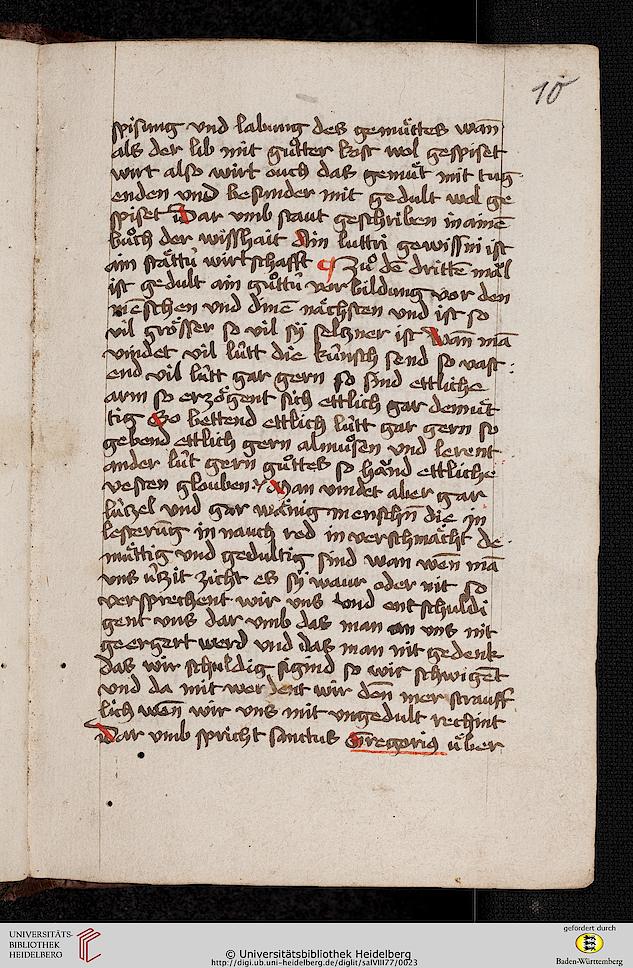 10
spisung vnd labung des gemuͤttes wan̄
als der lib mit guͦtter kost wol gespiset
wirt also wirt ouch das gemuͤt mit tug
enden vnd besunder mit gedult wol ge
spiset Dar vmb staut geschriben in ainē
buͦch der wisshait Ain luttri gewissni ist
ain staͤttu̇ wirtschafft ¶ Zuͦ dē drittē mal
ist gedult ain guͦttu̇ vor bildung vor den
mēschen vnd dinē naͤchsten vnd ist so
vil groͤsser so vil sy selzner ist Wan mā
vindet vil lu̇tt die ku̇nsch send so vast
end vil lu̇tt gar gern so sind ettliche
arm so erzoͤgent sich ettlich gar demuͤt
tig So bettend ettlich lu̇tt gar gern so
gebend ettlich gern almuͦsen vnd lerent
ander lu̇t gern guͦttes so hand ettliche
vesten glouben Man vindet aber gar
lu̇tzel vnd gar waͤnig menschn̄ die in
lesterūg in nauch red in verschmaͤcht de
muͤttig vnd gedultig sind wan wen̄ mā
vns u̇tzit zicht es sy waur oder nit so
versprechent wir vns vnd entschuldi
gent vns dar vmb das man an vns nit
geergert werd vnd das man nit gedenk
das wir schuldig sigind so wir schwigēt
vnd da mit werdent wir den̄ mer strauff
lich wen̄ wir vns mit vngedult rechint
Dar vmb spricht sanctus Gregorius u̇ber
UNIVERSITÄTS-
BIBLIOTHEK
HEIDELBERG
© Universitätsbibliothek Heidelberg
http://digi.ub.uni-heidelberg.de/diglit/salVIII77/0023
gefördert durch
Baden-Württemberg